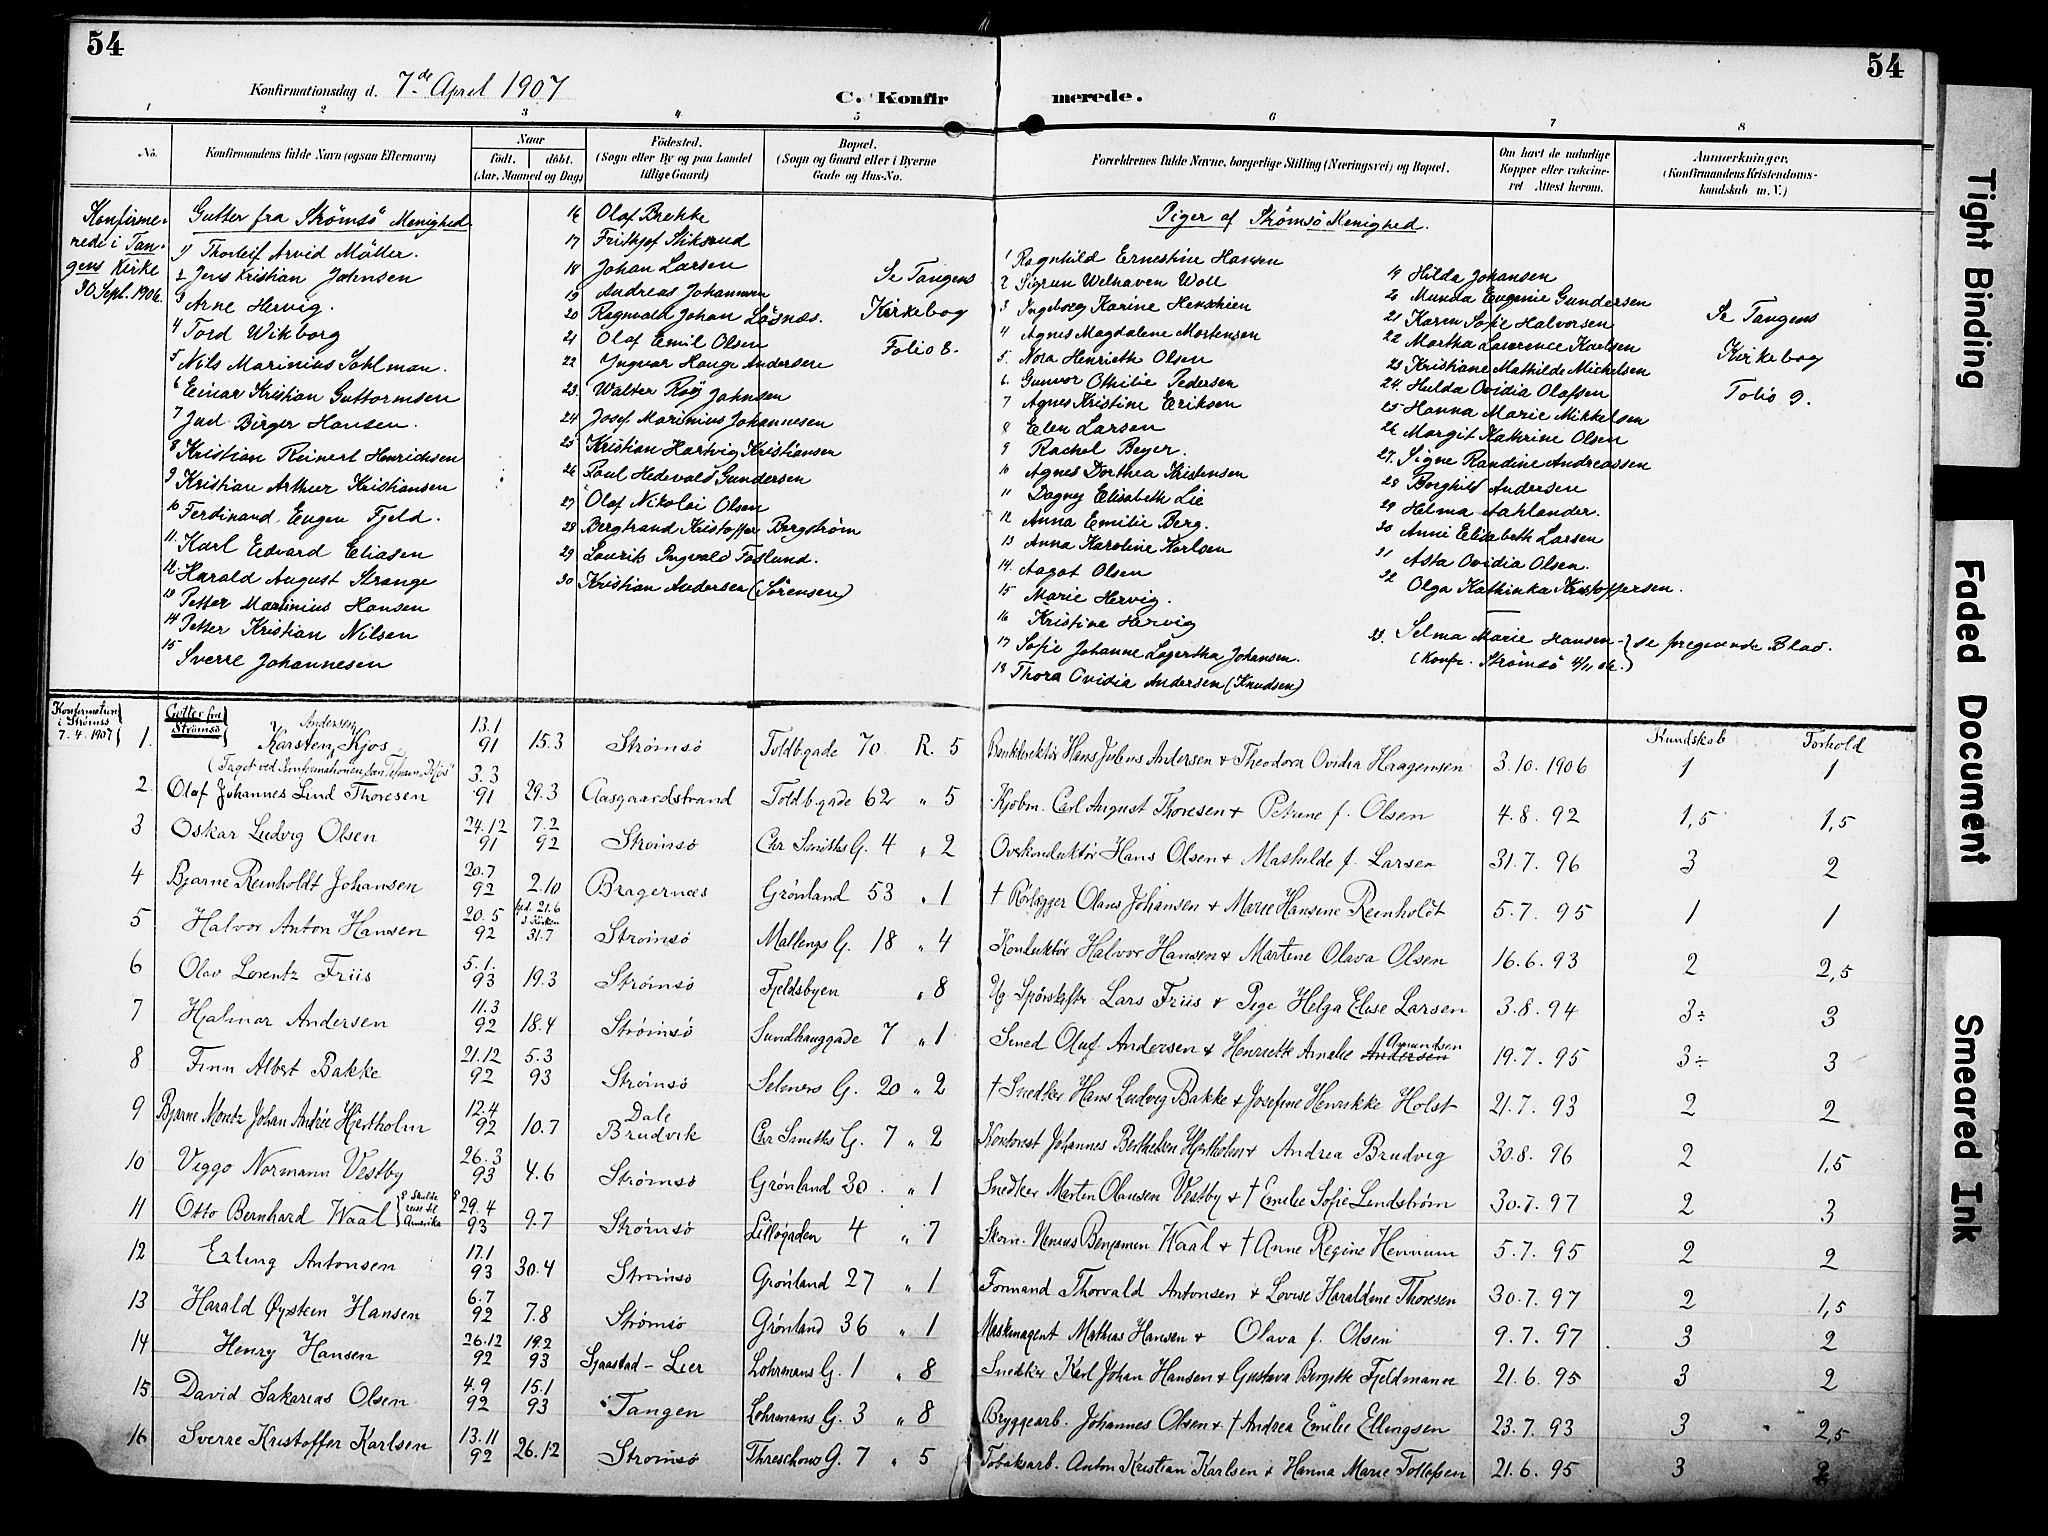 54
54
Konfirmationsdag d. 7de April 1907
C. Konfirmerede.
1 2 3 4 5 6 7 8
No.
Konfirmandens fulde Navn (ogsaa Efternavn)
Naar
født. døbt.
(Aar, Maaned og Dag)
Fødested.
(Sogn eller By og paa Landet
tillige Gaard)
Bopæl.
(Sogn og Gaard eller i Byerne
Gade og Hus-No.
Forældrenes fulde Navne, borgerlige Stilling (Næringsvei) og Bopæl.
Om havt de naturlige
Kopper eller vaccine-
ret. Attest herom.
Anmærkninger.
(Konfirmandens Kristendoms-
kundskab m. V.)
Konfirme-
rede i Tan-
gens Kirke
30 Sept. 1906.
Gutter fra Strømsø Menighed
1) Thorleif Arvid Møller.
2 Jens Kristian Johnsen
3 Arne Hervig.
4 Tord Wikborg
5 Nils Marinius Sohlman.
6 Einar Kristian Guttormsen
7 Jud. Birger Hansen.
8 Kristian Reinert Henrichsen
9 Kristian Arthur Kristiansen
10 Ferdinand Eugen Fjeld.
11 Karl Edvard Eliasen
12 Harald August Strange
13 Petter Martinius Hansen
14 Petter Kristian Nilsen
15 Sverre Johannesen
16 Olaf Brekke
17 Frithjof Stiksrud
18 Johan Larsen
19 Andreas Johannesen
20 Ragnvald Johan Løsnæs.
21 Olaf Emil Olsen
22 Yngvar Hauge Andersen
23 Walter Røy Johnsen
24 Josef Marinius Johannesen
25 Kristian Hartvig Kristiansen
26 Paul Hedevald Gundersen
27 Olaf Nikolai Olsen
28 Bergtrand Kristoffer Bergstrøm
29 Laurits Ingvald Foslund.
30 Kristian Andersen (Sørensen)
Se Tangens
Kirkebog
Folio 8.
Piger af Strømsø Menighed.
1 Ragnhild Ernestine Hansen
2 Sigrun Welhaven Woll
3 Ingeborg Karine Henschien
4 Agnes Magdalene Mortensen
5. Nora Henriette Olsen
6. Gunvor Othilie Pedersen
7 Agnes Kristine Eriksen
8 Elen Larsen
9 Rachel Beyer.
10 Agnes Dorthea Kristensen
11 Dagny Elisabeth Lie
12 Anna Emilie Berg.
13 Anna Karoline Karlsen
14. Aagot Olsen
15 Marie Hervig.
16 Kristine Hervig
17 Sofie Johanne Lagertha Johansen.
18 Thora Ovidia Andersen (Knudsen)
19 Hilda Johansen
20 Munda Eugenie Gundersen
21 Karen Sofie Halvorsen
22 Martha Lawrence Karlsen
23 Kristiane Mathilde Mickelsen
24. Hulda Ovidia Olafsen
25 Hanna Marie Mikkelsen
26 Margit Kathrine Olsen
27. Signe Randine Andreassen
28 Borghild Andersen
29 Helma Aahlander.
30 Anni Elisabeth Larsen
31 Asta Ovidia Olsen.
32 Olga Kathinka Kristoffersen.
33. Selma Marie Hansen } se foregaaende Blad.
(Konfr. Strømsø 4/11 06.)
Se Tangens
Kirkebog
Folio 9.
Konfirmation
i Strømsø
7. 4. 1907
Gutter fra
Strømsø
Kundskab Forhold
1. Karsten Andersen Kjos 13.1 91 15.3 Strømsø Toldb.gade 70 R. 5 Bankdirektør Hans Julius Andersen & Theodora Ovidia Haagensen 3.10.1906 1 1
2 Olaf Johannes Lind Thoresen 3.3 91 29.3 Aasgaardstrand Toldb.gade 62 „ 5 Kjøbm. Carl August Thoresen & Petrine f. Olsen 4.8.92 1,5 1,5
3 Oskar Ludvig Olsen 24.12 91 7.2 92 Strømsø Chr Smiths G. 4 „ 2 Overkonduktør Hans Olsen & Mathilde f. Larsen 31.7.96 3 2
4 Bjarne Reinholdt Johansen 20.7 92 2.10 Bragernæs Grønland 53 „ 1 † Rørlægger Olaus Johansen & Marie Hansine Reinholdt 5.7.95 1 1
5 Halvor Anton Hansen 20.5 92 hjd. 21.6 i Kirken 31.7 Strømsø Mallings G. 18 „ 4 Konduktør Halvor Hansen & Martine Olava Olsen 16.6.93 2 2,5
6 Olav Lorentz Friis 5.1. 93 19.3 Strømsø Fjeldsbyen „ 8 Ug Lars Friis & Pige Helga Elise Larsen 3.8.94 3÷ 3
7 Hjalmar Andersen 11.3 92 18.4 Strømsø Sundhauggade 7 „ 1 Smed Oluf Andersen & Henriette Amalie Andersen Amundsen 19.7.95 3÷ 3
8 Finn Albert Bakke 21.12 92 5.3 93 Strømsø Selmers G. 20 „ 2 † Snedker Hans Ludvig Bakke & Josefine Henrikke Holst 21.7.93 2 2
9 Bjarne Moritz Johan Andrée Hjertholm 12.4 92 10.7 Dale Brudvik Chr Smiths G. 7 „ 2 Kontorist Johannes Berthelsen Hjertholm & Andrea Brudvig 30.8.96 2 1,5
10 Viggo Normann Vestby 26.3 93 4.6 Strømsø Grønland 30. „ 1 Snedker Morten Olausen Vestby & † Emilie Sofie Lindstrøm 30.7.97 2 3
11 Otto Bernhard Waal { Skulde reise til Amerika 29.4 93 9.7 Strømsø Lilløgaden 4 „ 7 Skom. Nenius Benjamin Waal & † Anne Regine Hennum 5.7.95 2 2
12 Erling Antonsen 17.1 93 30.4 Strømsø Grønland 27 „ 1 Formand Thorvald Antonsen & Lovise Haraldine Thoresen 30.7.97 2 1,5
13 Harald Øystein Hansen 6.7 92 7.8 Strømsø Grønland 36 „ 1 Maskinagent Mathias Hansen & Olava f. Olsen 9.7.97 3 2
14 Henry Hansen 26.12 92 19.2 93 Sjaastad - Lier Lohrmans G. 1 „ 8 Snedker Karl Johan Hansen & Gustava Birgitte Fjeldmann 21.6.95 3 2
15 David Sakarias Olsen 4.9 92 15.1 93 Tangen Lohrmans G. 3 „ 8 Bryggearb. Johannes Olsen & † Andrea Emilie Ellingsen 23.7.93 3 2,5
16 Sverre Kristoffer Karlsen 13.11 92 26.12 Strømsø Threschows G. 7 „ 5 Tobaksarb. Anton Kristian Karlsen & Hanna Marie Tollefsen 21.6.95 3 2
Tight Binding
Faded Document
Smeared Ink